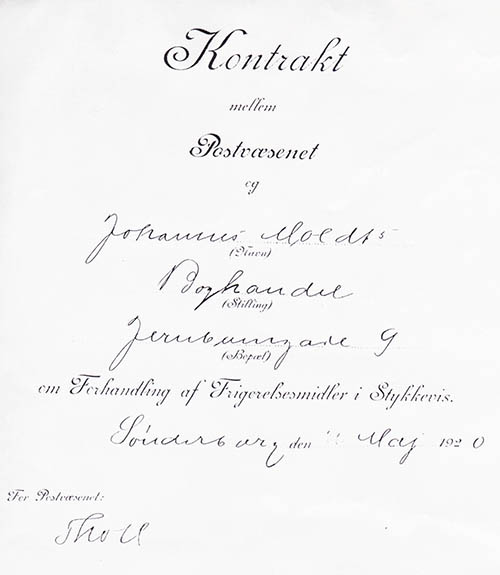 Kontrakt
mellem
Postvæsenet
og
Johannes Moldts
(Navn)
Boghandel
(Stilling)
Jernbanegade 9
(Bopæl)
om Forhandling af Frigørelsesmidler i Stykkevis.
Sønderborg den Maj 1920
For Postvæsenet: